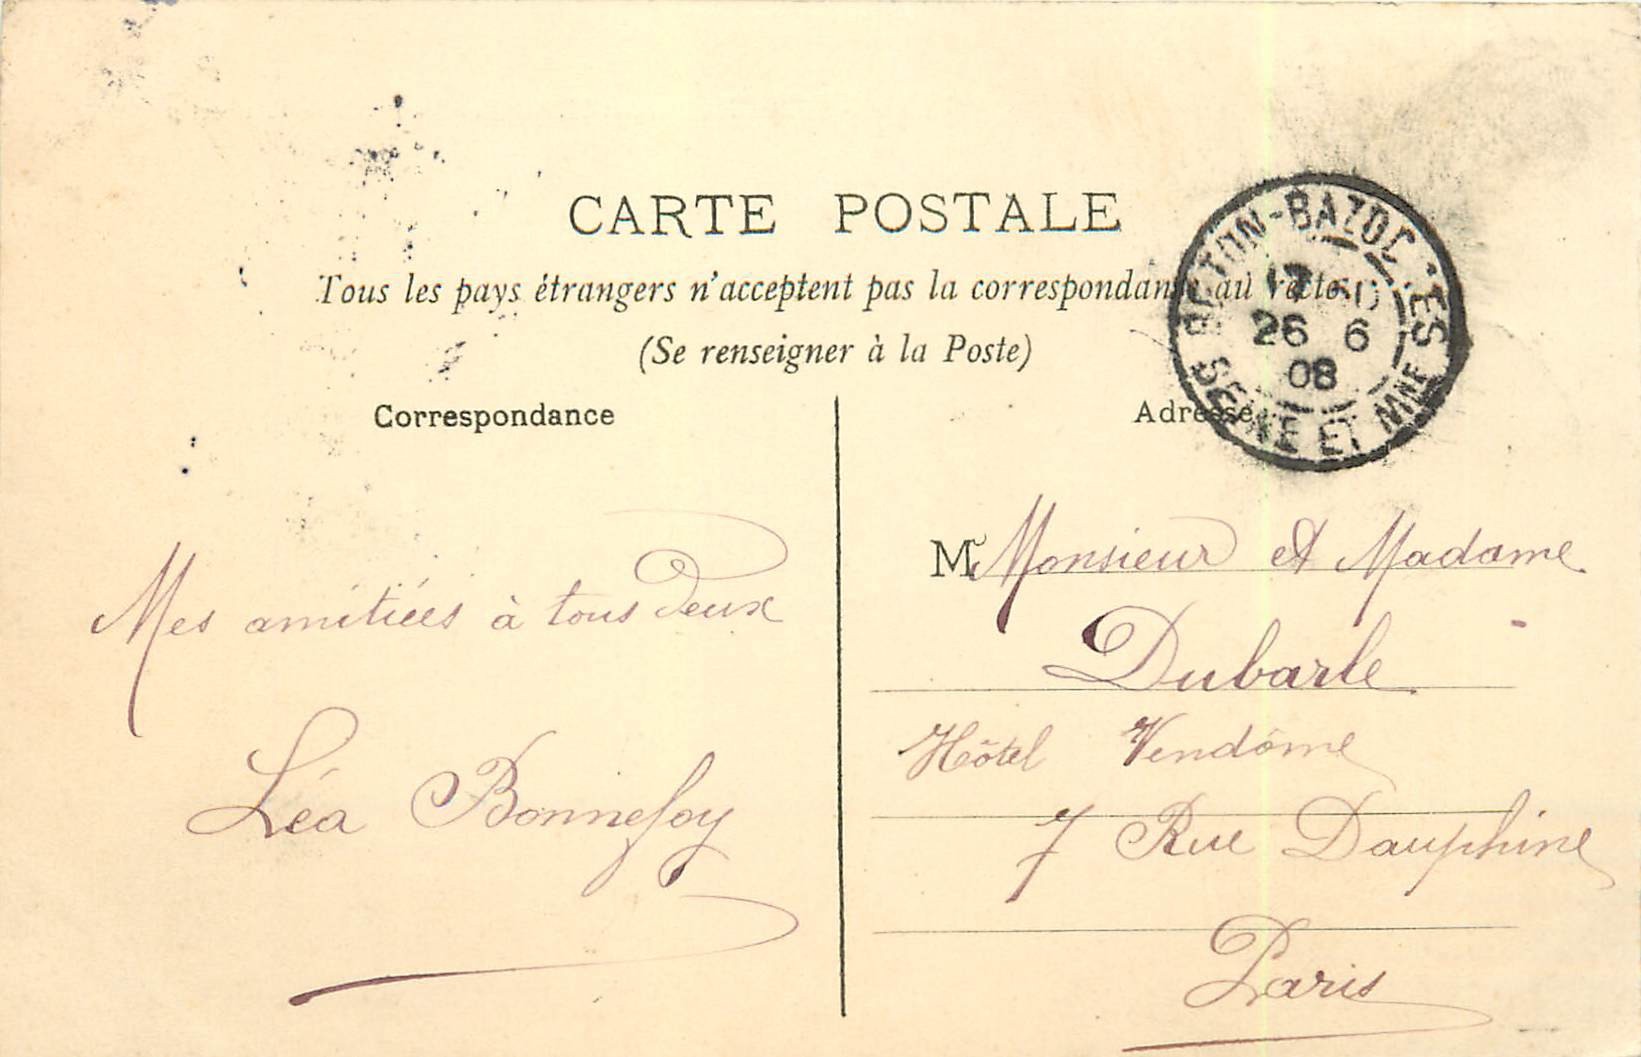 CARTE POSTALE
Tous les pays étrangers n'acceptent pas la correspondance au recto.
(Se renseigner à la Poste)
Correspondance
Adresse
BETON-BAZOCHES
26 6
08
SEINE ET MNE
Mes amitiées à tous deux
Léa Bonnefoy
M Monsieur et Madame
Dubarle
Hôtel Vendôme
7 Rue Dauphine
Paris